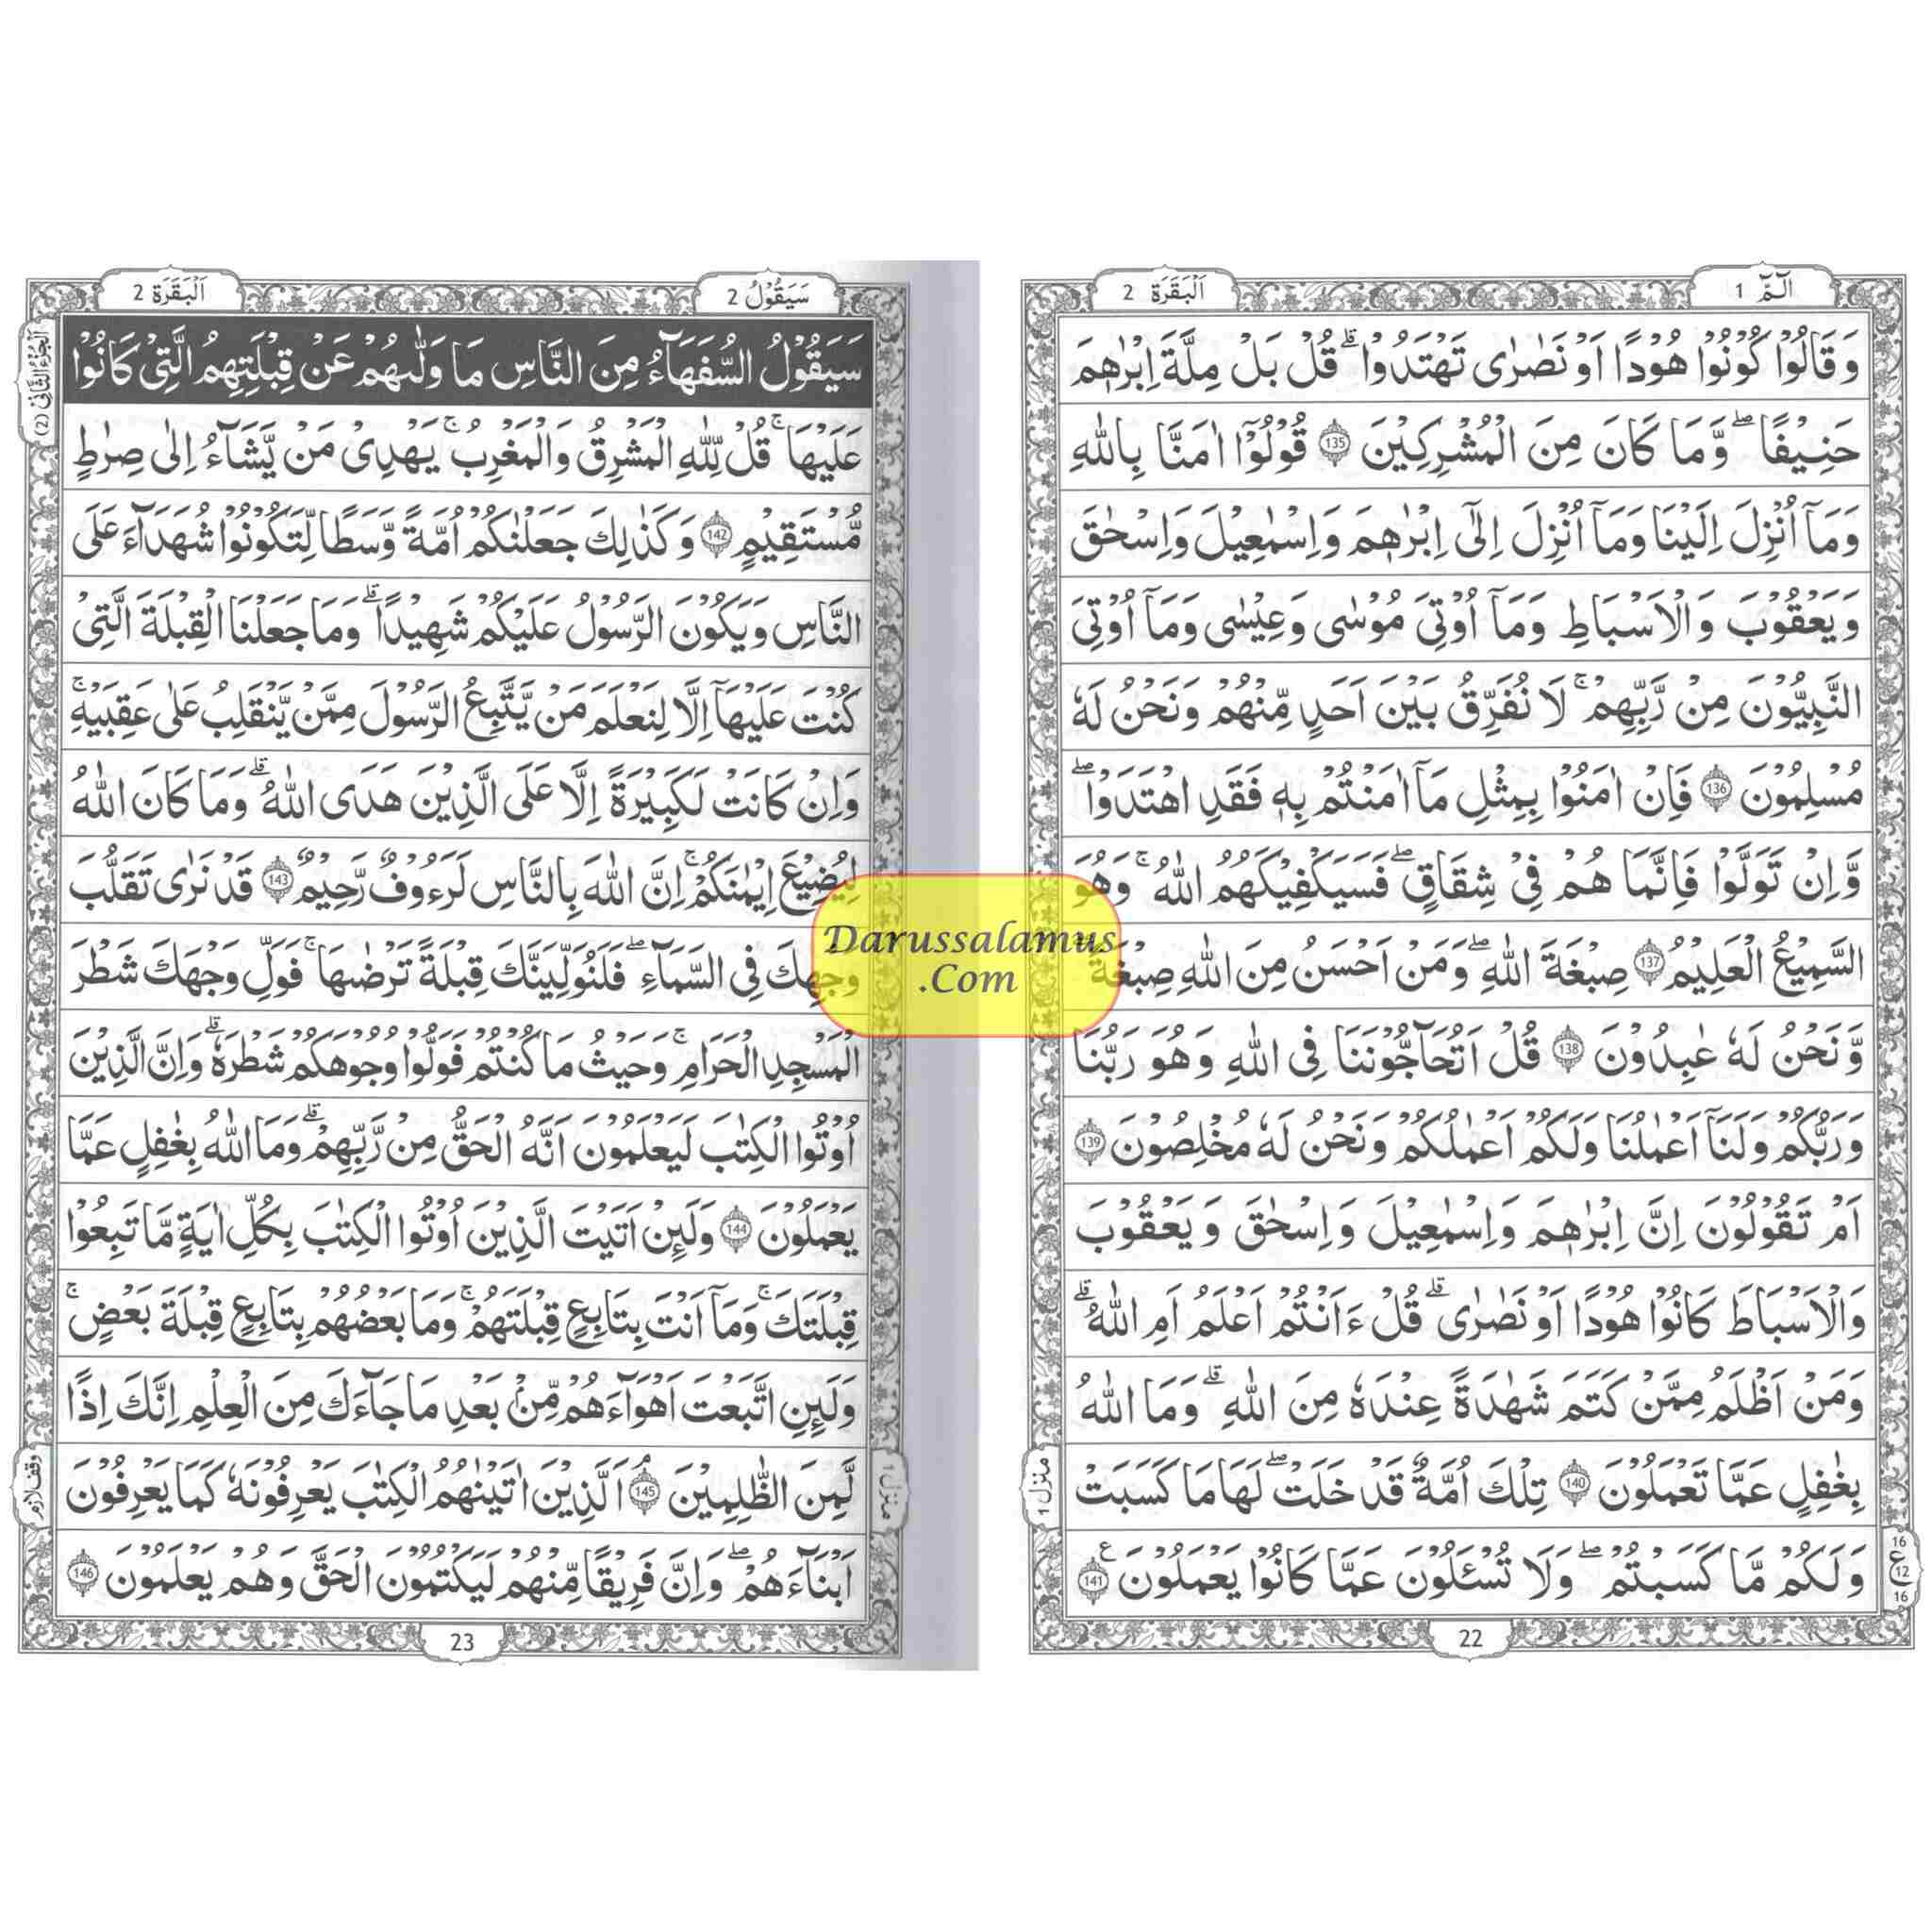 الٓمّٓ 1
اَلْبَقَرَة 2
وَقَالُوْا كُوْنُوْا هُوْدًا اَوْ نَصٰرٰى تَهْتَدُوْا ۗ قُلْ بَلْ مِلَّةَ اِبْرٰهٖمَ
حَنِيْفًا ۖ وَّمَا كَانَ مِنَ الْمُشْرِكِيْنَ 135 قُوْلُوْٓا اٰمَنَّا بِاللّٰهِ
وَمَآ اُنْزِلَ اِلَيْنَا وَمَآ اُنْزِلَ اِلٰٓى اِبْرٰهٖمَ وَاِسْمٰعِيْلَ وَاِسْحٰقَ
وَيَعْقُوْبَ وَالْاَسْبَاطِ وَمَآ اُوْتِيَ مُوْسٰى وَعِيْسٰى وَمَآ اُوْتِيَ
النَّبِيُّوْنَ مِنْ رَّبِّهِمْ ۚ لَا نُفَرِّقُ بَيْنَ اَحَدٍ مِّنْهُمْ وَنَحْنُ لَهٗ
مُسْلِمُوْنَ 136 فَاِنْ اٰمَنُوْا بِمِثْلِ مَآ اٰمَنْتُمْ بِهٖ فَقَدِ اهْتَدَوْا ۖ
وَّاِنْ تَوَلَّوْا فَاِنَّمَا هُمْ فِيْ شِقَاقٍ ۖ فَسَيَكْفِيْكَهُمُ اللّٰهُ ۚ وَهُوَ
السَّمِيْعُ الْعَلِيْمُ 137 صِبْغَةَ اللّٰهِ ۖ وَمَنْ اَحْسَنُ مِنَ اللّٰهِ صِبْغَةً
وَّنَحْنُ لَهٗ عٰبِدُوْنَ 138 قُلْ اَتُحَآجُّوْنَنَا فِي اللّٰهِ وَهُوَ رَبُّنَا
وَرَبُّكُمْ وَلَنَآ اَعْمٰلُنَا وَلَكُمْ اَعْمٰلُكُمْ وَنَحْنُ لَهٗ مُخْلِصُوْنَ 139
اَمْ تَقُوْلُوْنَ اِنَّ اِبْرٰهٖمَ وَاِسْمٰعِيْلَ وَاِسْحٰقَ وَيَعْقُوْبَ
وَالْاَسْبَاطَ كَانُوْا هُوْدًا اَوْ نَصٰرٰى ۗ قُلْ ءَاَنْتُمْ اَعْلَمُ اَمِ اللّٰهُ ۗ
وَمَنْ اَظْلَمُ مِمَّنْ كَتَمَ شَهٰدَةً عِنْدَهٗ مِنَ اللّٰهِ ۗ وَمَا اللّٰهُ
بِغٰفِلٍ عَمَّا تَعْمَلُوْنَ 140 تِلْكَ اُمَّةٌ قَدْ خَلَتْ ۖ لَهَا مَا كَسَبَتْ
وَلَكُمْ مَّا كَسَبْتُمْ ۖ وَلَا تُسْـَٔلُوْنَ عَمَّا كَانُوْا يَعْمَلُوْنَ ع 141
منزل ١
16
ع
12
16
22
سَيَقُوْلُ 2
اَلْبَقَرَة 2
اَلْجُزْءُ الثَّانِيْ (2)
سَيَقُوْلُ السُّفَهَآءُ مِنَ النَّاسِ مَا وَلّٰىهُمْ عَنْ قِبْلَتِهِمُ الَّتِيْ كَانُوْا
عَلَيْهَا ۚ قُلْ لِّلّٰهِ الْمَشْرِقُ وَالْمَغْرِبُ ۚ يَهْدِيْ مَنْ يَّشَآءُ اِلٰى صِرٰطٍ
مُّسْتَقِيْمٍ 142 وَكَذٰلِكَ جَعَلْنٰكُمْ اُمَّةً وَّسَطًا لِّتَكُوْنُوْا شُهَدَآءَ عَلَى
النَّاسِ وَيَكُوْنَ الرَّسُوْلُ عَلَيْكُمْ شَهِيْدًا ۗ وَمَا جَعَلْنَا الْقِبْلَةَ الَّتِيْ
كُنْتَ عَلَيْهَآ اِلَّا لِنَعْلَمَ مَنْ يَّتَّبِعُ الرَّسُوْلَ مِمَّنْ يَّنْقَلِبُ عَلٰى عَقِبَيْهِ ۚ
وَاِنْ كَانَتْ لَكَبِيْرَةً اِلَّا عَلَى الَّذِيْنَ هَدَى اللّٰهُ ۗ وَمَا كَانَ اللّٰهُ
لِيُضِيْعَ اِيْمٰنَكُمْ ۚ اِنَّ اللّٰهَ بِالنَّاسِ لَرَءُوْفٌ رَّحِيْمٌ 143 قَدْ نَرٰى تَقَلُّبَ
وَجْهِكَ فِي السَّمَآءِ ۖ فَلَنُوَلِّيَنَّكَ قِبْلَةً تَرْضٰىهَا ۚ فَوَلِّ وَجْهَكَ شَطْرَ
الْمَسْجِدِ الْحَرَامِ ۚ وَحَيْثُ مَا كُنْتُمْ فَوَلُّوْا وُجُوْهَكُمْ شَطْرَهٗ ۗ وَاِنَّ الَّذِيْنَ
اُوْتُوا الْكِتٰبَ لَيَعْلَمُوْنَ اَنَّهُ الْحَقُّ مِنْ رَّبِّهِمْ ۗ وَمَا اللّٰهُ بِغٰفِلٍ عَمَّا
يَعْمَلُوْنَ 144 وَلَئِنْ اَتَيْتَ الَّذِيْنَ اُوْتُوا الْكِتٰبَ بِكُلِّ اٰيَةٍ مَّا تَبِعُوْا
قِبْلَتَكَ ۚ وَمَآ اَنْتَ بِتَابِعٍ قِبْلَتَهُمْ ۚ وَمَا بَعْضُهُمْ بِتَابِعٍ قِبْلَةَ بَعْضٍ ۚ
وَلَئِنِ اتَّبَعْتَ اَهْوَآءَهُمْ مِّنْۢ بَعْدِ مَا جَآءَكَ مِنَ الْعِلْمِ اِنَّكَ اِذًا
لَّمِنَ الظّٰلِمِيْنَ ۘ 145 اَلَّذِيْنَ اٰتَيْنٰهُمُ الْكِتٰبَ يَعْرِفُوْنَهٗ كَمَا يَعْرِفُوْنَ
اَبْنَآءَهُمْ ۖ وَاِنَّ فَرِيْقًا مِّنْهُمْ لَيَكْتُمُوْنَ الْحَقَّ وَهُمْ يَعْلَمُوْنَ 146
منزل ١
وقف لازم
23
Darussalamus
.Com